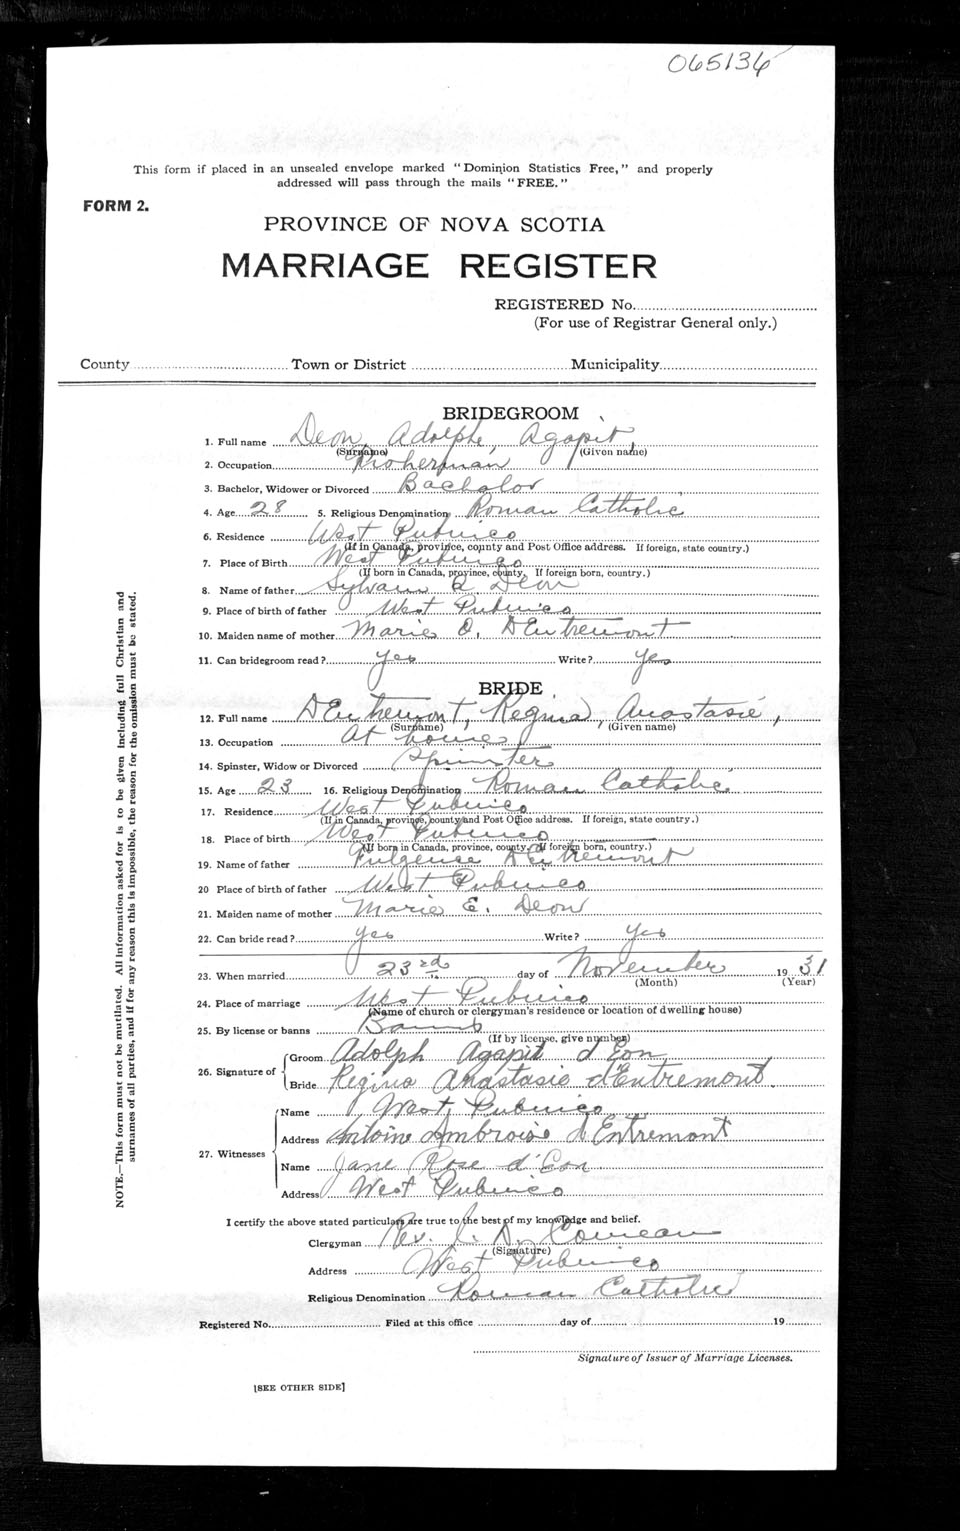 065136
This form if placed in an unsealed envelope marked "Dominion Statistics Free," and properly
addressed will pass through the mails "FREE."
FORM 2.
PROVINCE OF NOVA SCOTIA
MARRIAGE REGISTER
REGISTERED No.
(For use of Registrar General only.)
County Town or District Municipality
BRIDEGROOM
1. Full name Deon, Adolphe, Agapit,
(Surname) (Given name)
2. Occupation
3. Bachelor, Widower or Divorced Bachelor
4. Age 28 5. Religious Denomination Roman Catholic
6. Residence West Pubnico
(If in Canada, province, county and Post Office address. If foreign, state country.)
7. Place of Birth West Pubnico
(If born in Canada, province, county. If foreign born, country.)
8. Name of father Sylvain Deon
9. Place of birth of father West Pubnico
10. Maiden name of mother Marie O. DEntremont
11. Can bridegroom read? yes Write? yes
BRIDE
12. Full name DEntremont, Regina, Anastasie,
(Surname) (Given name)
13. Occupation At home
14. Spinster, Widow or Divorced Spinster
15. Age 23 16. Religious Denomination Roman Catholic
17. Residence West Pubnico
(If in Canada, province, county and Post Office address. If foreign, state country.)
18. Place of birth West Pubnico
(If born in Canada, province, county. If foreign born, country.)
19. Name of father Fulgence DEntremont
20 Place of birth of father West Pubnico
21. Maiden name of mother Marie E. Deon
22. Can bride read? yes Write? yes
23. When married 23rd day of November 1931
(Month) (Year)
24. Place of marriage West Pubnico
(Name of church or clergyman's residence or location of dwelling house)
25. By license or banns Banns
(If by license, give number)
26. Signature of
Groom Adolph Agapit d'Eon
Bride Regina Anastasie d'Entremont.
27. Witnesses
Name West Pubnico
Address Antoine Ambroise d'Entremont
Name Jane Rose d'Eon
Address West Pubnico
I certify the above stated particulars are true to the best of my knowledge and belief.
Clergyman Rev. D. Comeau
(Signature)
Address West Pubnico
Religious Denomination Roman Catholic
Registered No. Filed at this office day of 19
Signature of Issuer of Marriage Licenses.
[SEE OTHER SIDE]
NOTE.—This form must not be mutilated. All information asked for is to be given including full Christian and
surnames of all parties, and if for any reason this is impossible, the reason for the omission must be stated.